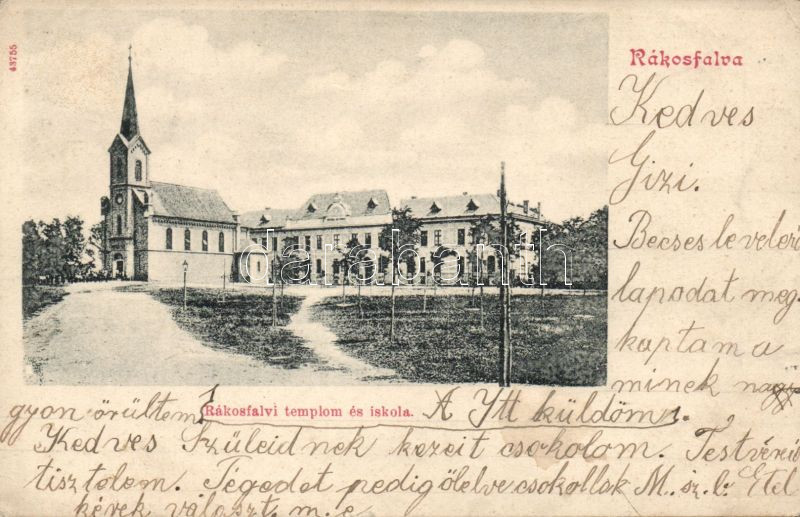 43755
Rákosfalva
Kedves
Gizi.
Becses levelező
lapodat meg
kaptam a
minek nagy
gyon örültem
Rákosfalvi templom és iskola.
A Itt küldöm.
Kedves Szüleidnek kezeit csokolom. Testvérei
tisztelem. Tégedet pedig ölelve csokollak M. sz. b. Etel
kérek választ. m. e
databanth